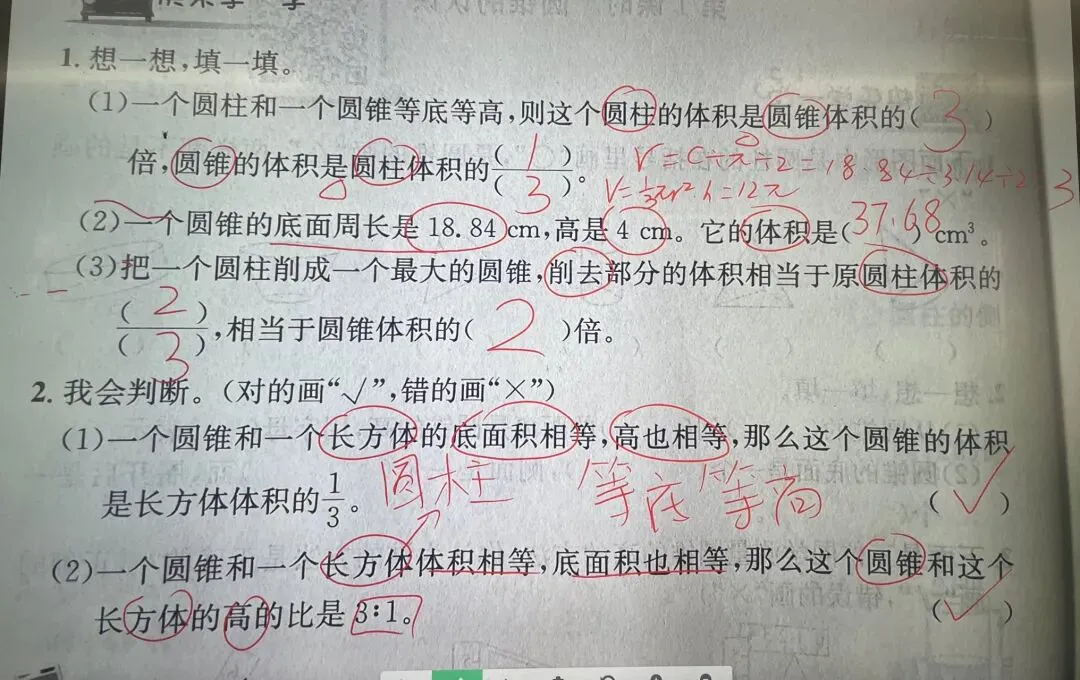 1. 想一想,填一填。
(1)一个圆柱和一个圆锥等底等高,则这个圆柱的体积是圆锥体积的( 3 )
倍,圆锥的体积是圆柱体积的(1)/(3)。
r=C÷π÷2=18.84÷3.14÷2=3
V=1/3πr²·h=12π
(2)一个圆锥的底面周长是 18.84 cm,高是 4 cm。它的体积是(37.68)cm³。
(3)把一个圆柱削成一个最大的圆锥,削去部分的体积相当于原圆柱体积的
(2)/(3),相当于圆锥体积的( 2 )倍。
2. 我会判断。(对的画“√”,错的画“×”)
(1)一个圆锥和一个长方体的底面积相等,高也相等,那么这个圆锥的体积
是长方体体积的1/3。 (√)
圆柱 等底等高
(2)一个圆锥和一个长方体体积相等,底面积也相等,那么这个圆锥和这个
长方体的高的比是 3∶1。 (√)